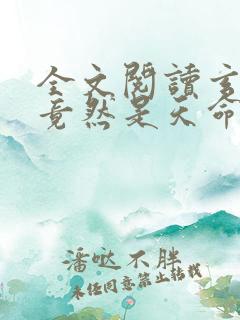 全文閱讀玄
竟然是天命
潘哒不胖
未经同意禁止转载